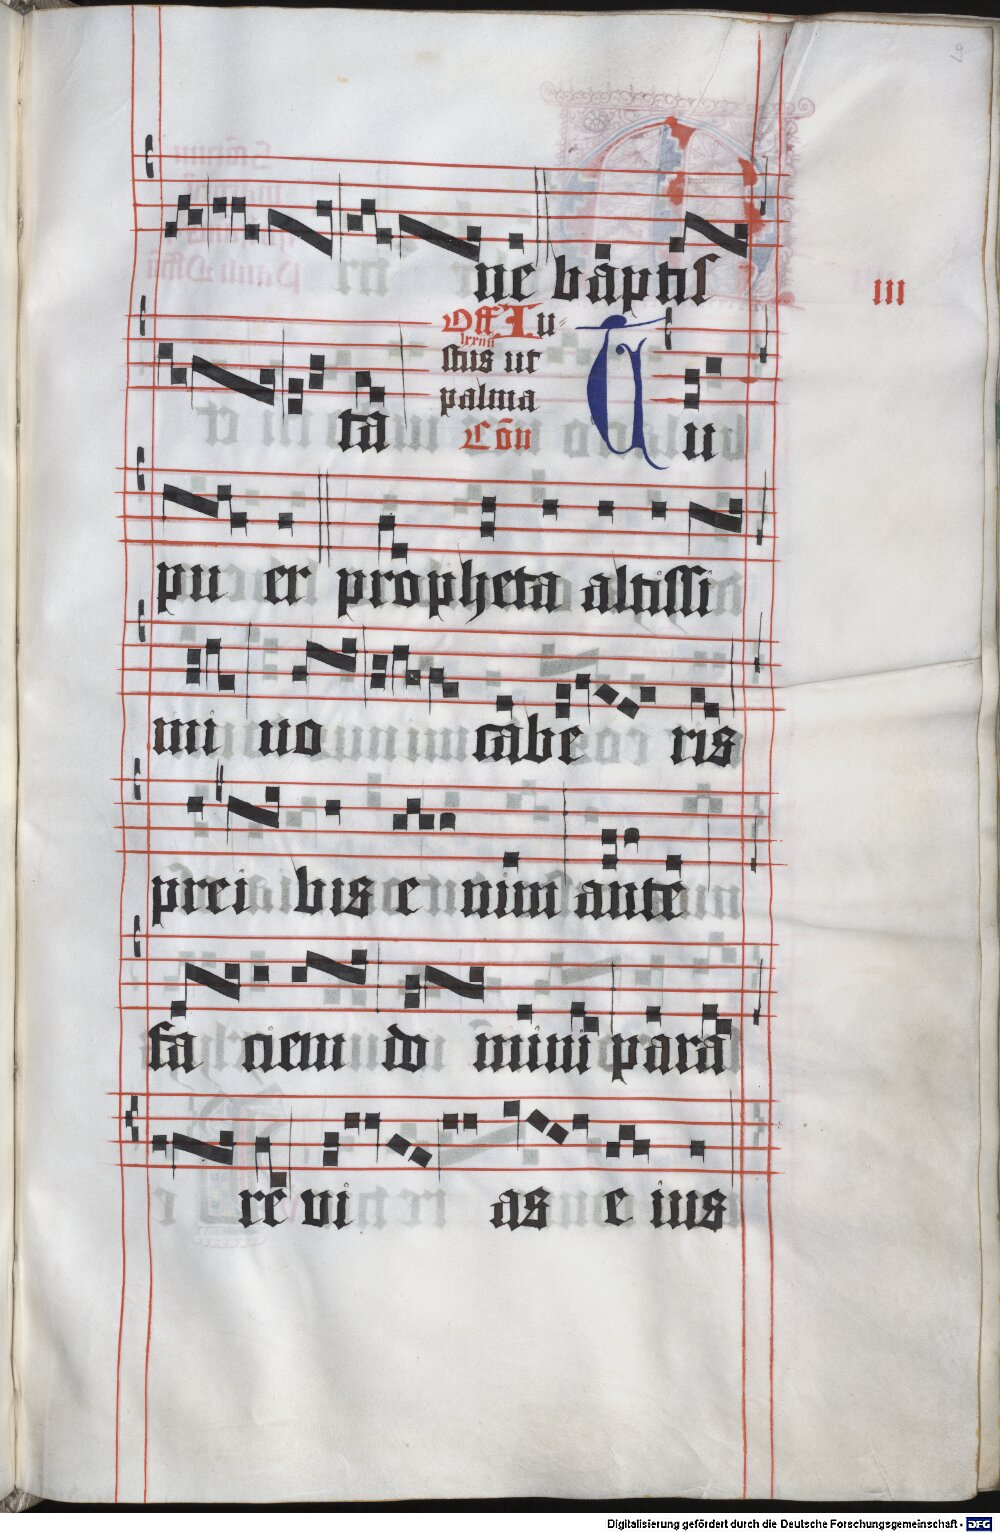 ne baptis
III
Off Iu-
lxxiiii
stus ut
palma
Cōn
ta
Tu
pu er propheta altissi
mi uo cabe ris
prei bis e nim ante
fa ciem do mini para
re vi as e ius
Digitalisierung gefördert durch die Deutsche Forschungsgemeinschaft - DFG